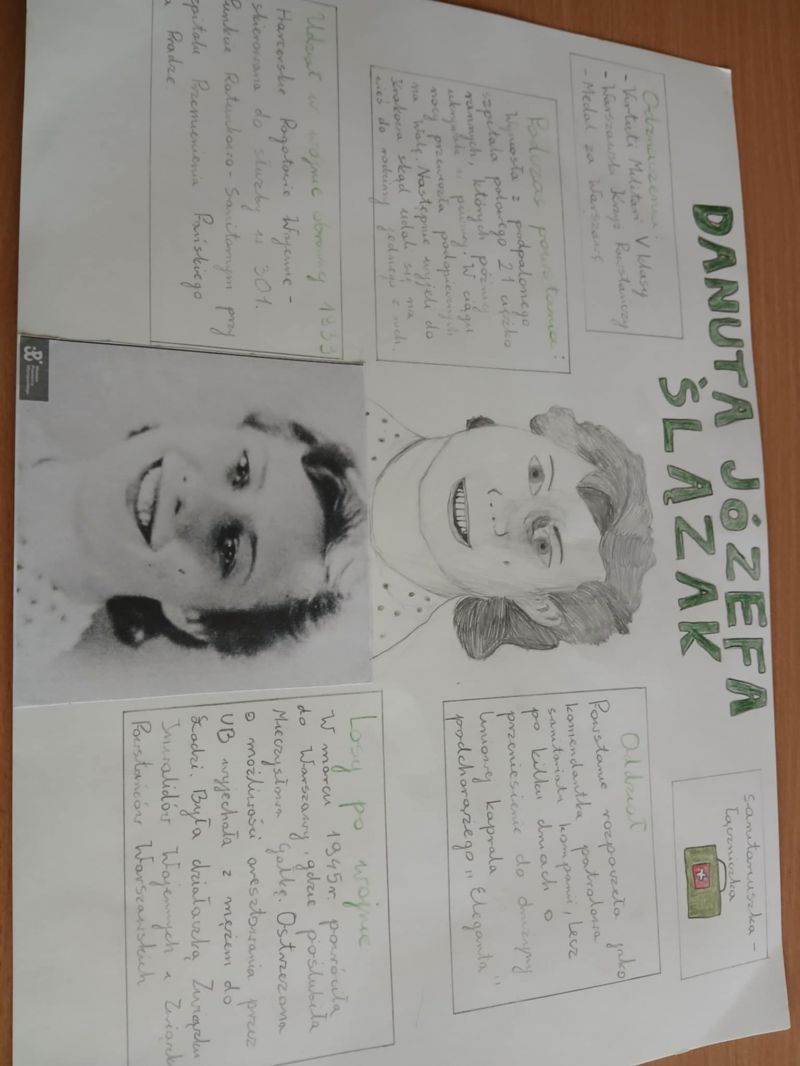 DANUTA JÓZEFA
ŚLĄZAK
Odznaczenia:
- Virtuti Militari V klasy
- Warszawski Krzyż Powstańczy
- Medal za Warszawę
sanitariuszka -
łączniczka
Podczas powstania:
Wyniosła z podpalonego
szpitala polowego 21 ciężko
rannych, których później
ukrywała w piwnicy. W ciągu
nocy przewiozła podopiecznych
na Wolę. Następnie wyjechali do
Krakowa skąd udali się na
wieś do rodziny jednego z nich.
Oddział
Powstanie rozpoczęła jako
komendantka patrolowa
sanitariatu kompanii, lecz
po kilku dniach o
przeniesienie do drużyny
liniowej kaprala
podchorążego "Eleganta"
Udział w wojnie obronnej 1939
Harcerskie Pogotowie Wojenne -
skierowana do służby w 301.
Punkcie Ratunkowo - Sanitarnym przy
Szpitalu Przemienienia Pańskiego
na Pradze.
Losy po wojnie
W marcu 1945r. powróciła
do Warszawy, gdzie poślubiła
Mieczysława Gałkę. Ostrzeżona
o możliwości aresztowania przez
UB wyjechała z mężem do
Łodzi. Była działaczką Związku
Inwalidów Wojennych i Związku
Powstańców Warszawskich